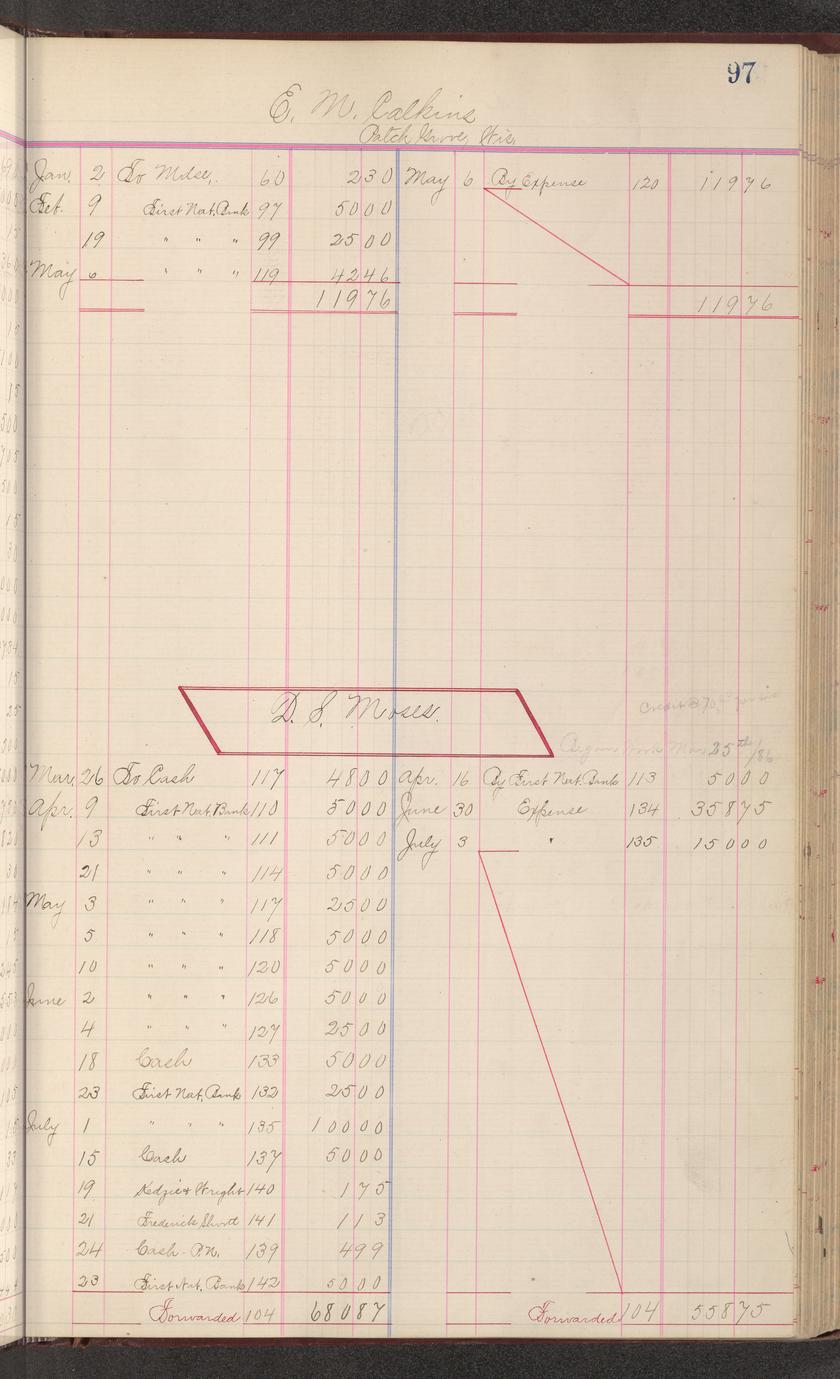 97
E. M. Calkins
Patch Grove, Wis.
Jan. 2 To Mdse. 60 2 30 May 6 By Expense 120 119 76
Feb. 9 First Nat. Bank 97 50 00
19 " " " 99 25 00
May 6 " " " 119 42 46
119 76 119 76
D. S. Moses.
Credit @ 70
Began Work Mar 25th/86
Mar. 26 To Cash 117 48 00 Apr. 16 By First Nat. Bank 113 50 00
Apr. 9 First Nat. Bank 110 50 00 June 30 Expense 134 358 75
13 " " " 111 50 00 July 3 " 135 150 00
21 " " " 114 50 00
May 3 " " " 117 25 00
5 " " " 118 50 00
10 " " " 120 50 00
June 2 " " " 126 50 00
4 " " " 127 25 00
18 Cash 133 50 00
23 First Nat. Bank 132 25 00
July 1 " " " 135 100 00
15 Cash 137 50 00
19 Kedzie & Wright 140 1 75
21 Frederick Shortt 141 1 13
24 Cash - P.N. 139 4 99
23 First Nat. Bank 142 50 00
Forwarded 104 680 87 Forwarded 104 558 75